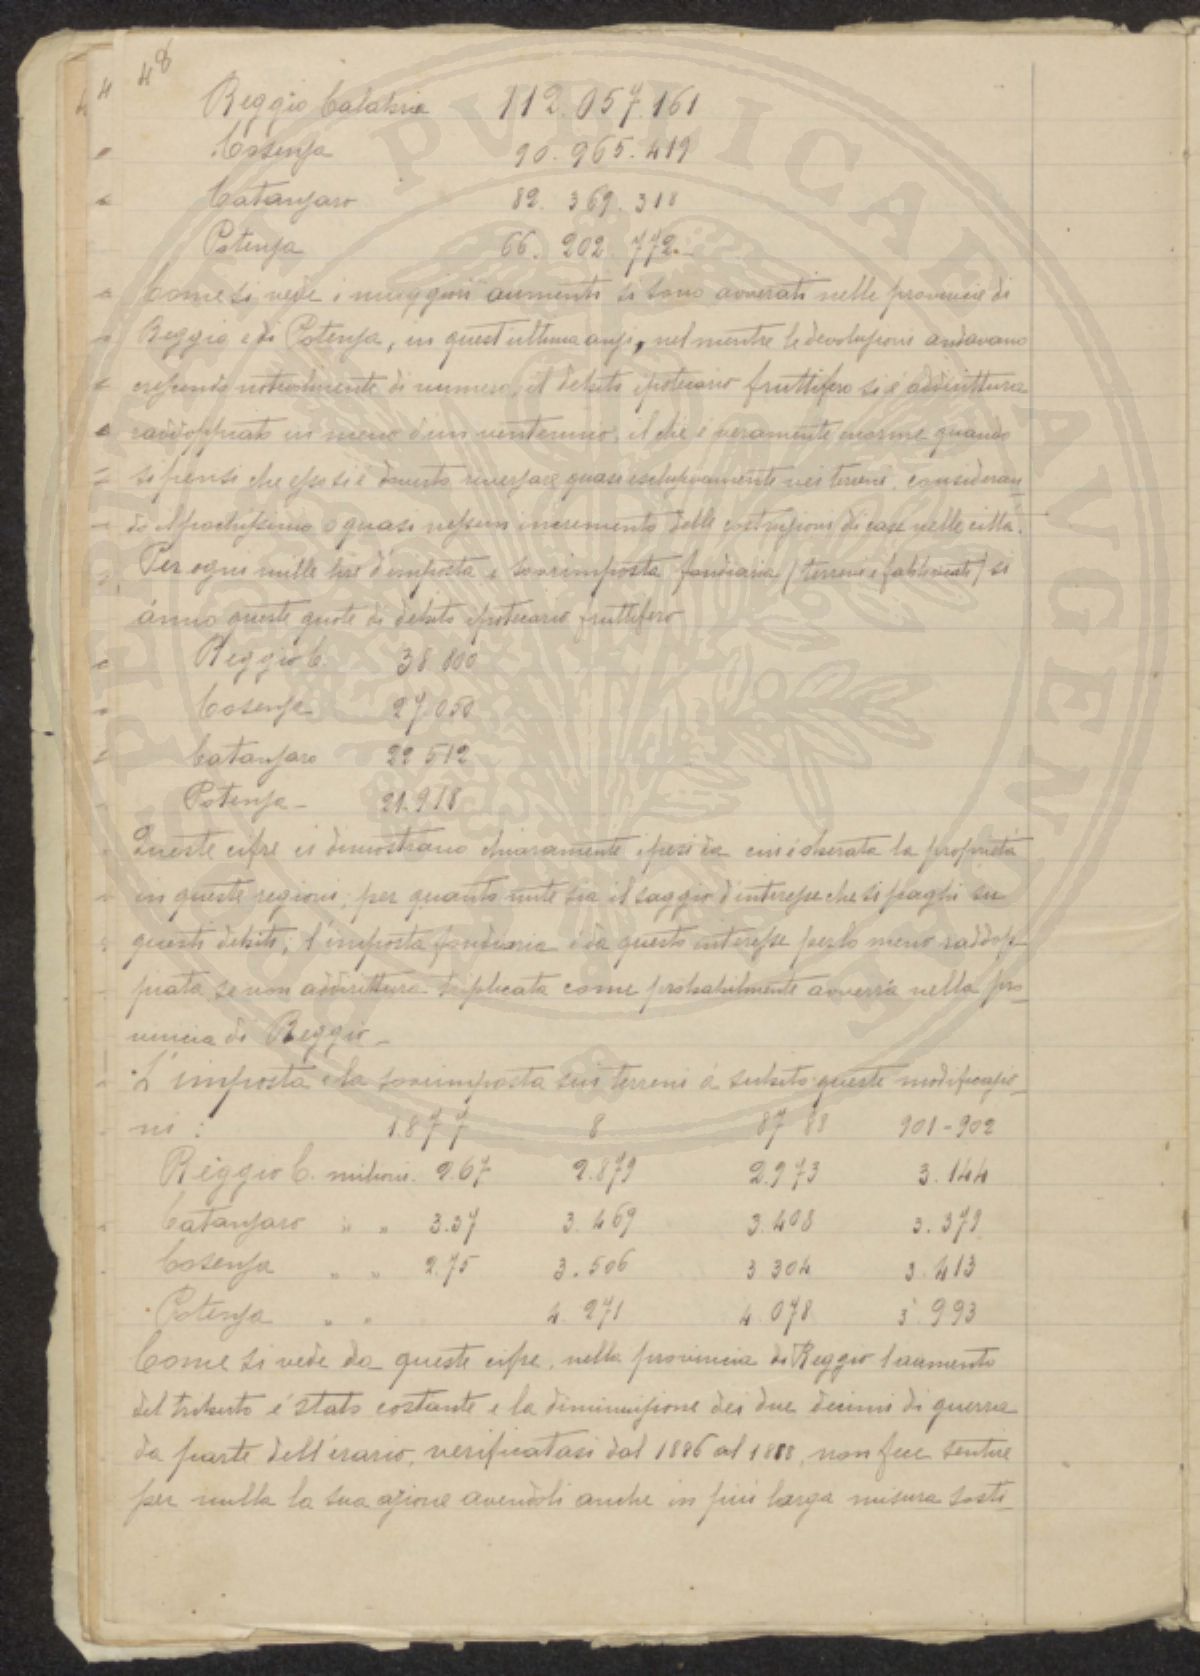 48
Reggio Calabria 112.057.161
Cosenza 90.965.419
Catanzaro 82.369.318
Potenza 66.202.772
Come si vede i maggiori aumenti si sono avverati nelle provincie di
Reggio e di Potenza, in quest'ultima anzi, nel mentre le devoluzioni andavano
crescendo notevolmente di numero, il debito ipotecario fruttifero si è addirittura
raddoppiato in meno d'un ventennio, il che è veramente enorme quando
si pensi che esso si è dovuto riversare quasi esclusivamente nei terreni, consideran-
do il pochissimo o quasi nessun incremento delle costruzioni di case nelle città.
Per ogni mille lire d'imposta e sovrimposta fondiaria (terreni e fabbricati) si
ánno queste quote di debito ipotecario fruttifero
Reggio C. 38.800
Cosenza 27.050
Catanzaro 22 512
Potenza - 21.918
Queste cifre ci dimostrano chiaramente i pesi da cui è oberata la proprietà
in queste regioni; per quanto mite sia il saggio d'interesse che si paghi su
questi debiti, l'imposta fondiaria è da questo interesse perlo meno raddop-
piata se non addirittura triplicata come probabilmente avverrà nella pro-
vincia di Reggio -
L'imposta e la sovrimposta sui terreni á subito queste modificazio-
ni : 1877 8 87 88 901-902
Reggio C. milioni. 2.67 2.879 2.973 3.144
Catanzaro " " 3.37 3.469 3.408 3.379
Cosenza " " 2.75 3.506 3 304 3.413
Potenza " " 4.271 4.078 3 993
Come si vede da queste cifre, nella provincia di Reggio l'aumento
del tributo è stato costante e la diminuizione dei due decimi di guerra
da parte dell'erario, verificatasi dal 1886 al 1888, non fece sentire
per nulla la sua azione avendoli anche in più larga misura sosti-